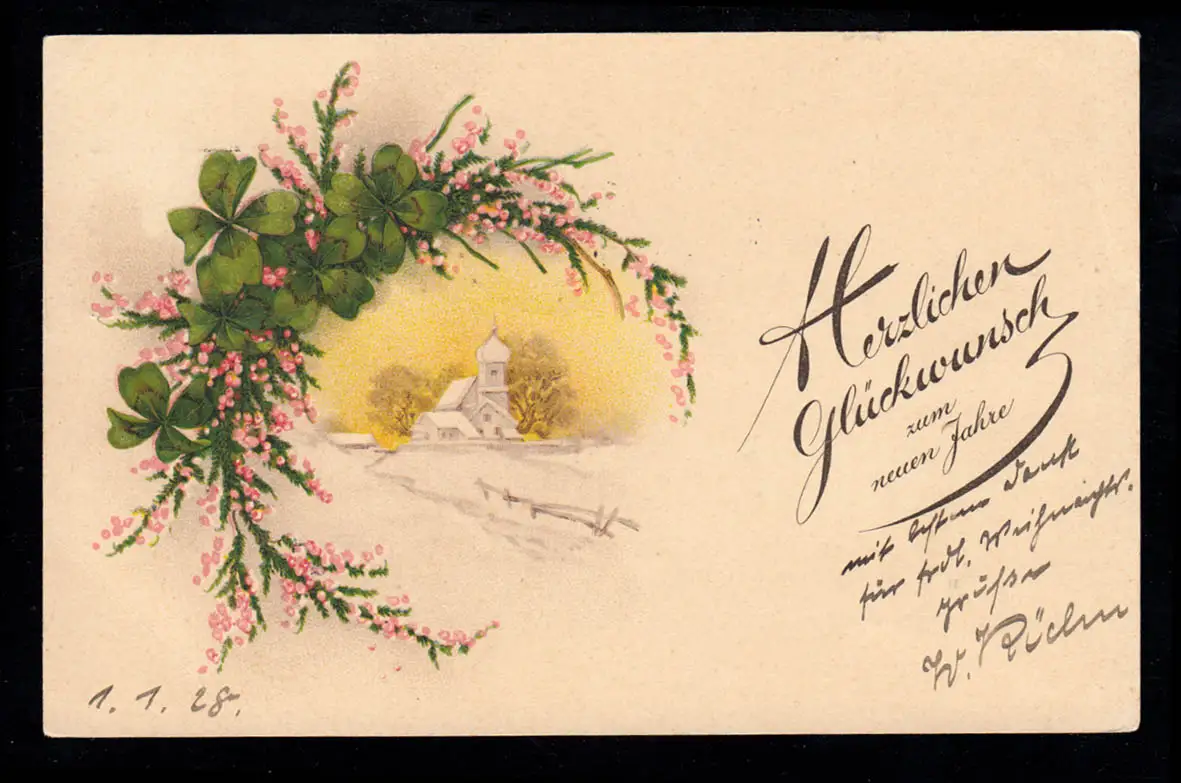 Herzlichen
Glückwunsch
zum
neuen Jahre
mit bestem Dank
für frdl. Weihnachts.
grüße
W.
1. 1. 28.